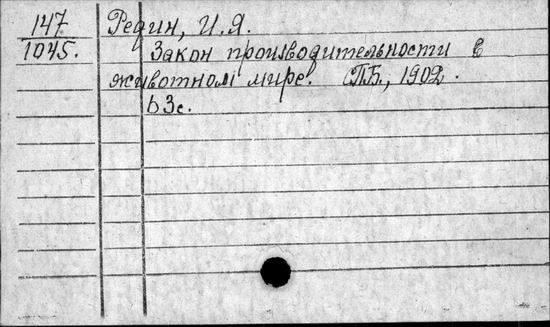 147 Редин, И.Я.
1045. Закон производительности в
животном мире. СПБ., 1902.
63с.